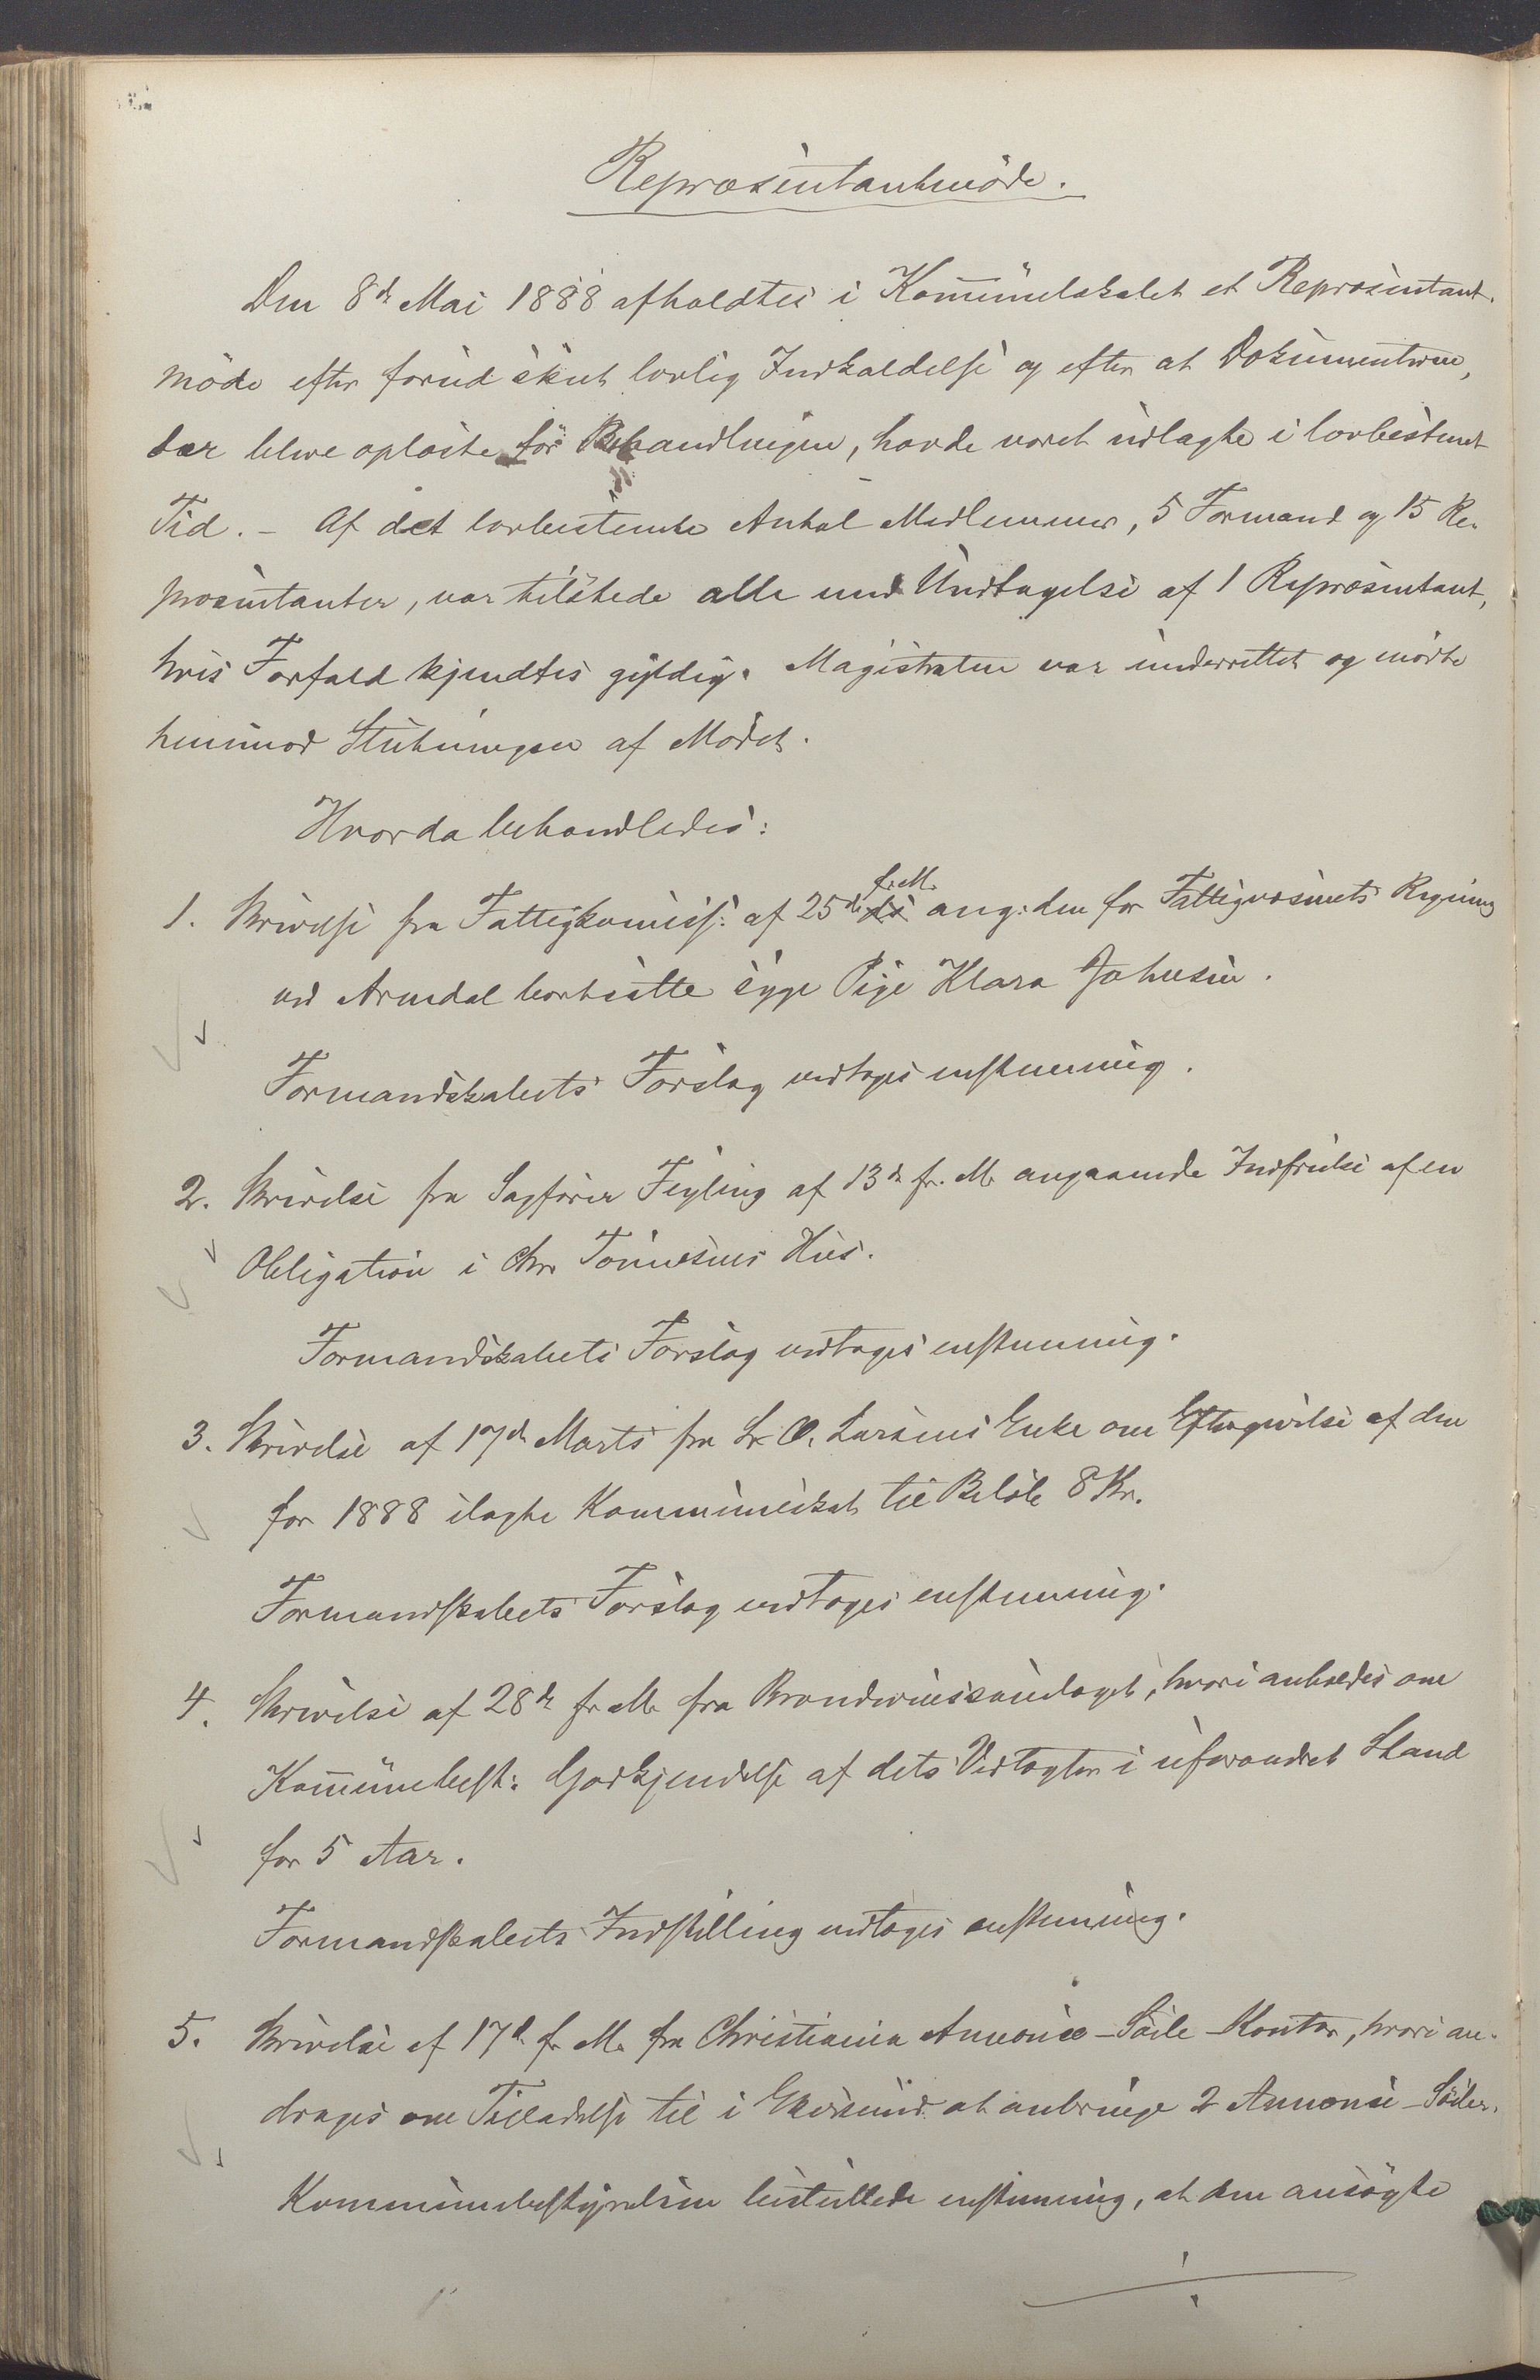 Repræsentantmøde.
Den 8de Mai 1888 afholdtes i Kommunelokalet et Repræsentant-
møde efter forud skeet lovlig Indkaldelse og efter at Dokumenterne,
der bleve oplæste før Behandlingen, havde været udlagte i lovbestemt
Tid. – Af det lovbestemte Antal Medlemmer, 5 Formænd og 15 Re-
præsentanter, var tilstede alle med Undtagelse af 1 Repræsentant,
hvis Forfald kjendtes gyldig. Magistraten var underrettet og mødte
henimod Slutningen af Mødet.
Hvorda behandledes:
1. Skrivelse fra Fattigkomiss: af 25de f. M. ang: den for Fattigvæsenets Regning
ved Arendal bortsatte syge Pige Klara Johnsen.
Formandskabets Forslag vedtoges enstemmig.
2. Skrivelse fra Sagfører Feyling af 13de fr. M. angaaende Indfrielse af en
Obligation i Chr. Tønnesens Hus.
Formandskabets Forslag vedtoges enstemmig.
3. Skrivelse af 17de Marts fra L. O. Larsens Enke om Eftergivelse af den
for 1888 ilagte Kommuneskat til Beløb 8 Kr.
Formandskabets Forslag vedtoges enstemmig.
4. Skrivelse af 28de fr. M. fra Brændevinssamlaget, hvori anholdes om
Kommunebest: Godkjendelse af dets Vedtægter i uforandret Stand
for 5 Aar.
Formandskabets Indstilling vedtoges enstemmig.
5. Skrivelse af 17de f. M. fra Christiania Annonce-Søile-Kontor, hvori an-
drages om Tilladelse til i Ekersund at anbringe 2 Annonce-Søiler.
Kommunebestyrelsen besluttede enstemmig, at den ansøgte